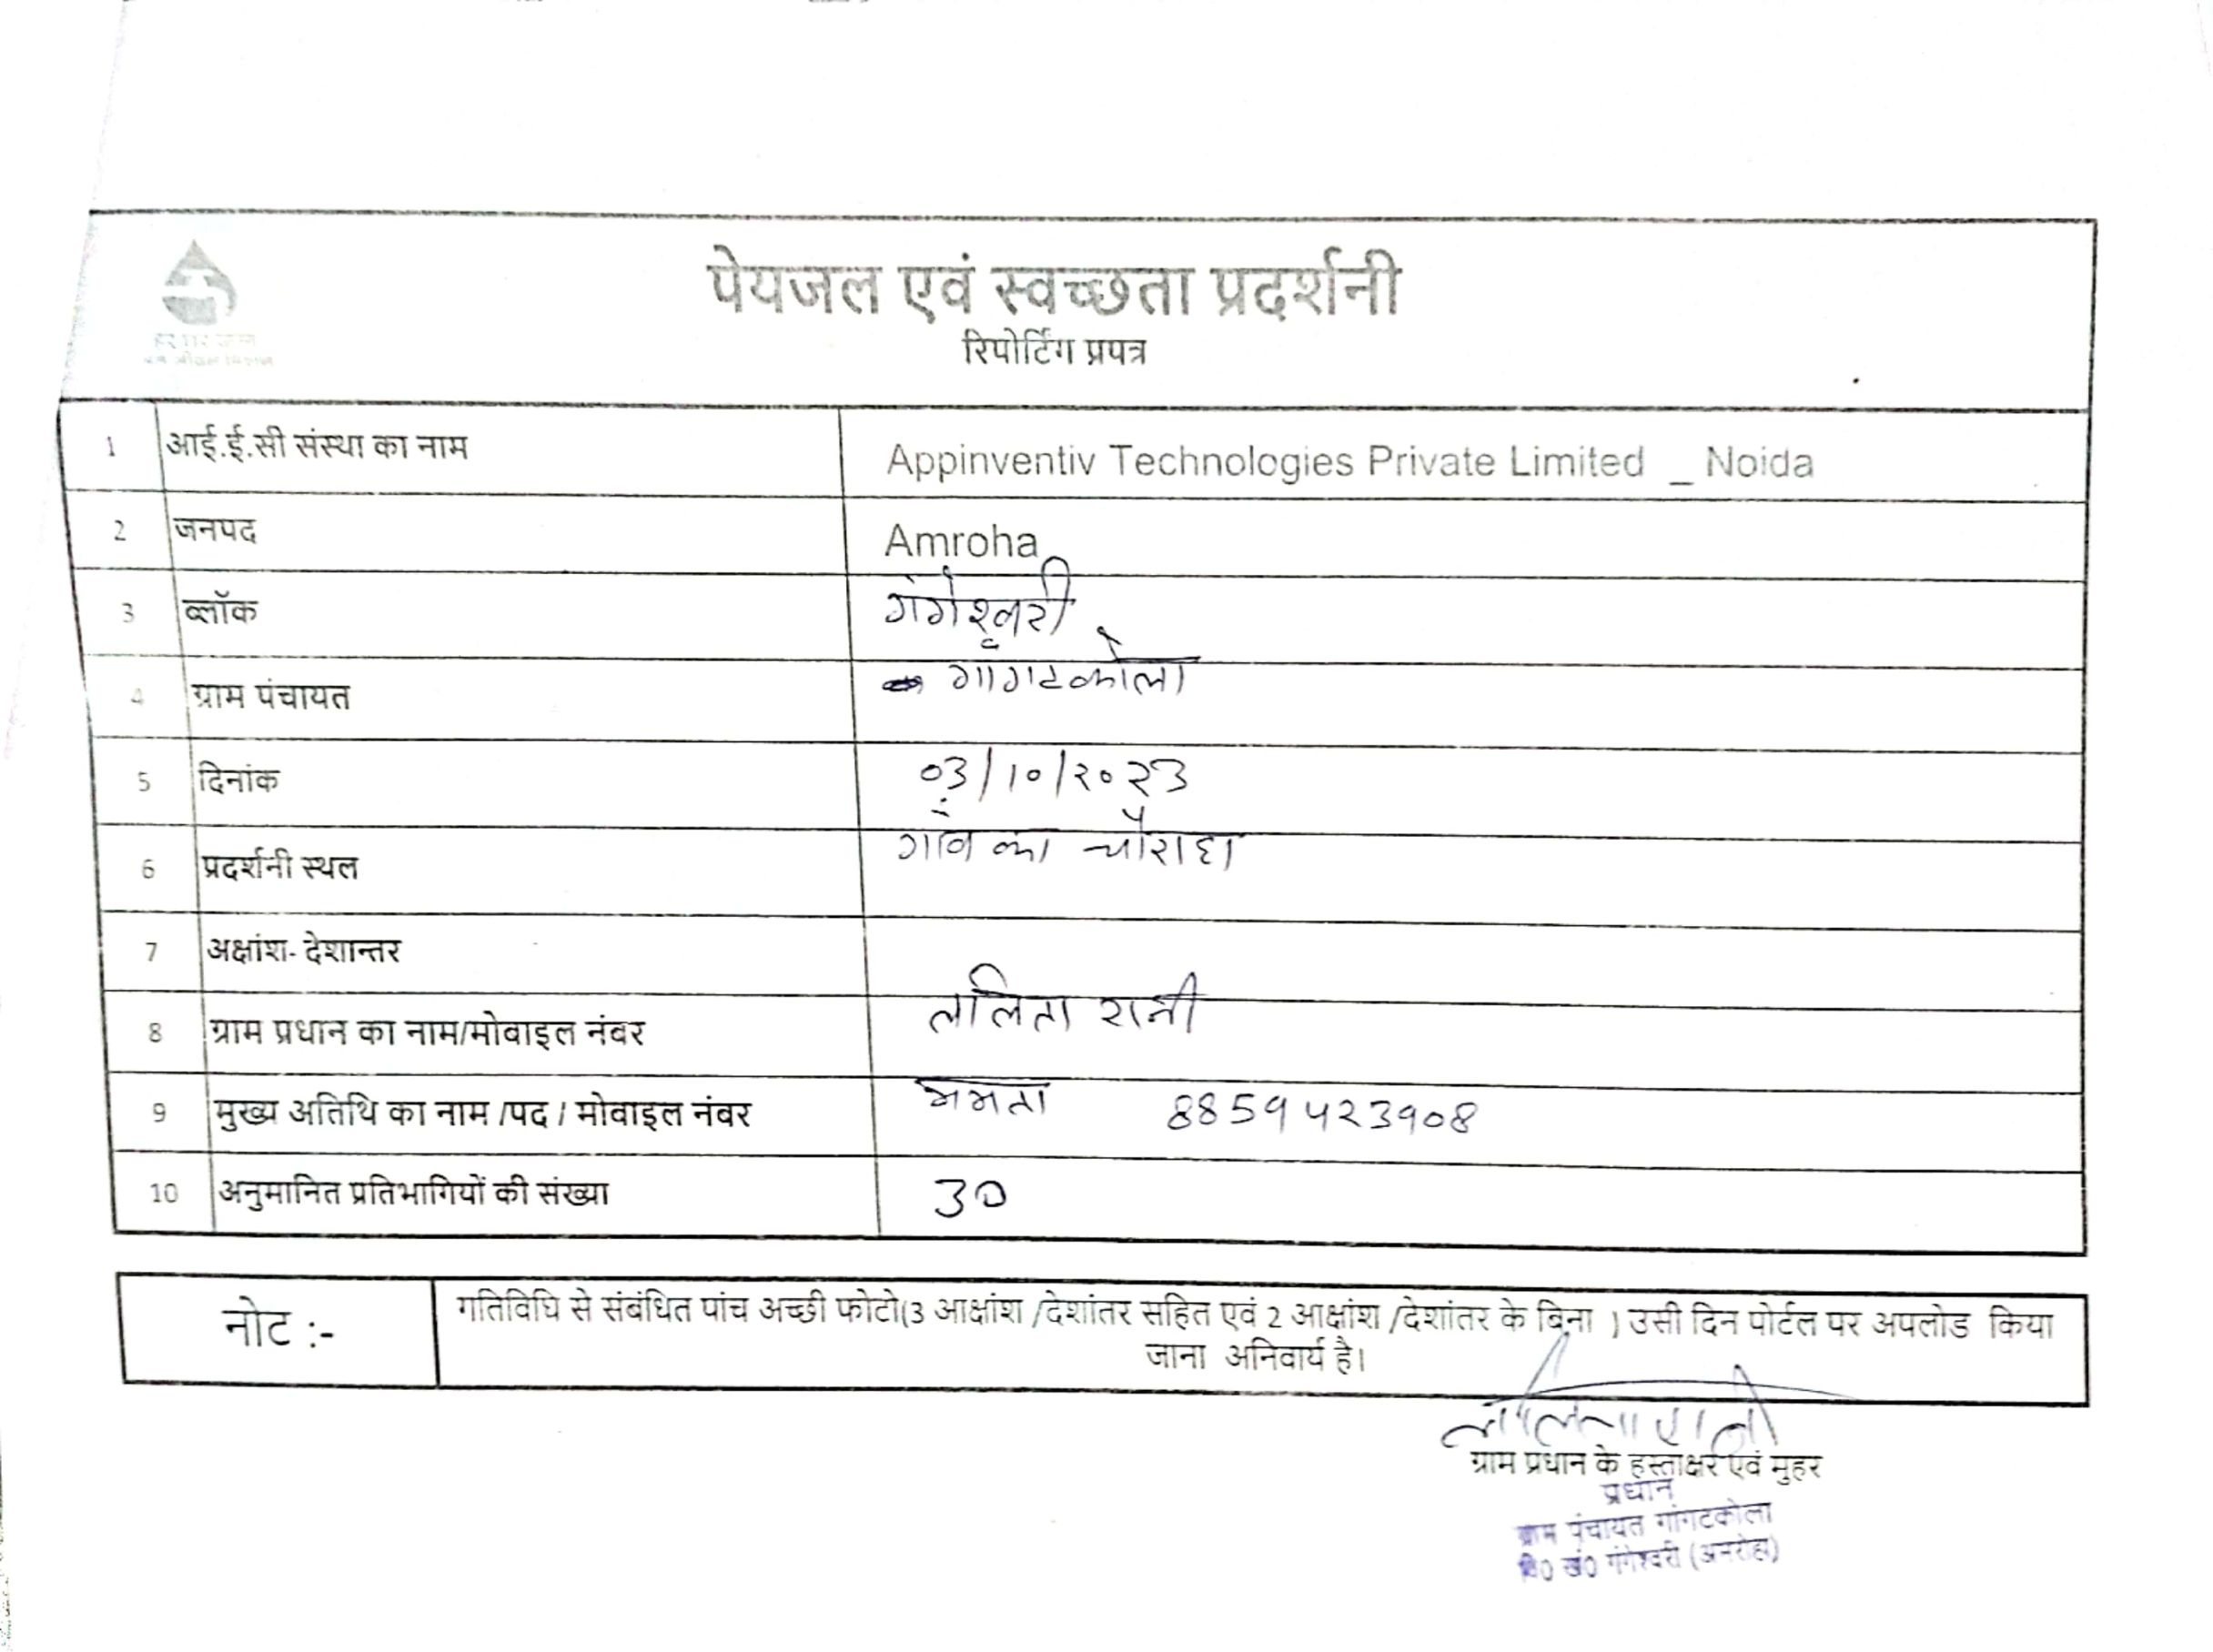 हर घर जल
जल जीवन मिशन
पेयजल एवं स्वच्छता प्रदर्शनी
रिपोर्टिंग प्रपत्र
1 आई.ई.सी संस्था का नाम Appinventiv Technologies Private Limited _ Noida
2 जनपद Amroha
3 ब्लॉक गंगेश्वरी
4 ग्राम पंचायत गागटकोला
5 दिनांक 03/10/2023
6 प्रदर्शनी स्थल गांव का चौराहा
7 अक्षांश- देशान्तर
8 ग्राम प्रधान का नाम/मोबाइल नंबर ललिता रानी
9 मुख्य अतिथि का नाम /पद / मोबाइल नंबर ममता 8859423908
10 अनुमानित प्रतिभागियों की संख्या 30
नोट :- गतिविधि से संबंधित पांच अच्छी फोटो(3 आक्षांश /देशांतर सहित एवं 2 आक्षांश /देशांतर के बिना ) उसी दिन पोर्टल पर अपलोड किया
जाना अनिवार्य है।
ललिता रानी
ग्राम प्रधान के हस्ताक्षर एवं मुहर
प्रधान
ग्राम पंचायत गांगटकोला
वि0 खं0 गंगेश्वरी (अमरोहा)